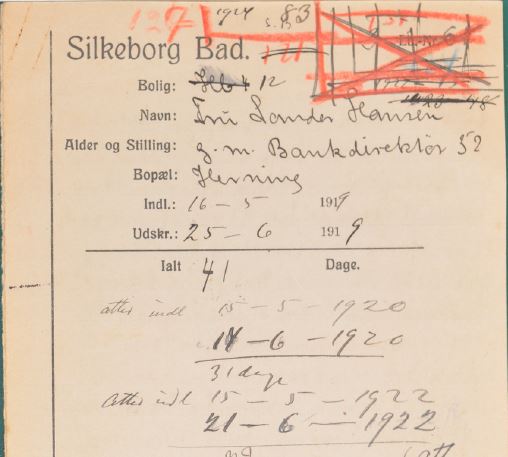 107 1924 S.B 83
Silkeborg Bad. 121
Bolig: Hb 4 12
Navn: Fru Lander Hansen
Alder og Stilling: g. m. Bankdirektör 52
Bopæl: Herning
Indl.: 16 - 5 1919
Udskr.: 25 - 6 1919
Ialt 41 Dage.
atter indl 15 - 5 - 1920
14 - 6 - 1920
31 dage
Atter indl 15 - 5 - 1922
21 - 6 - 1922